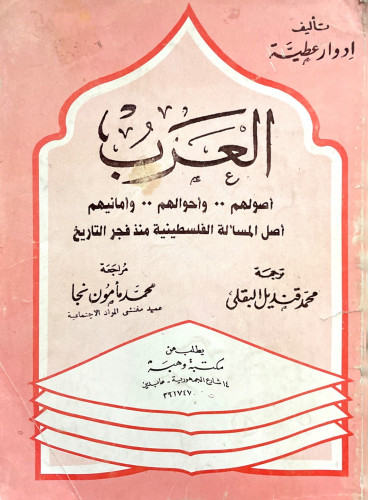 تأليف
ادوار عطية
العرب
أصولهم .. وأحوالهم .. وأمانيهم
أصل المسألة الفلسطينية منذ فجر التاريخ
ترجمة
محمد قنديل البقلى
مراجعة
محمد مأمون نجا
عميد مفتشى المواد الاجتماعية
يطلب من
مكتبة وهبة
١٤ شارع الجمهورية - عابدين
٣٩١٧٤٧٠